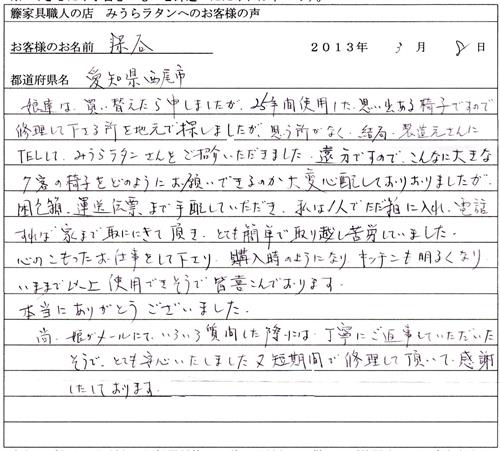 籐家具職人の店 みうらラタンへのお客様の声
お客様のお名前 2013年 3月 8日
都道府県名 愛知県西尾市
娘達は、買い替えたら申しましたが、25年間使用した思い出ある椅子ですので
修理して下さる所を地元で探しましたが、思う所がなく、結局、製造元さんに
TELして、みうらラタンさんをご紹介いただきました。遠方ですので、こんなに大きな
7客の椅子をどのようにお願いできるのか大変心配しておりおりましたが、
梱包箱、運送伝票まで手配していただき、私は1人でただ箱に入れ、電話
すれば家まで取ににきて頂き、とても簡単で取り越し苦労していました。
心のこもったお仕事をして下さり、購入時のようになり、キッチンも明るくなり、
いままで以上使用できそうで皆喜こんでおります。
本当にありがとうございました。
尚、娘がメールにて、いろいろ質問した際には、丁寧にご返事していただいた
そうで、とても安心いたしました又短期間で修理して頂いて感謝
いたしております。